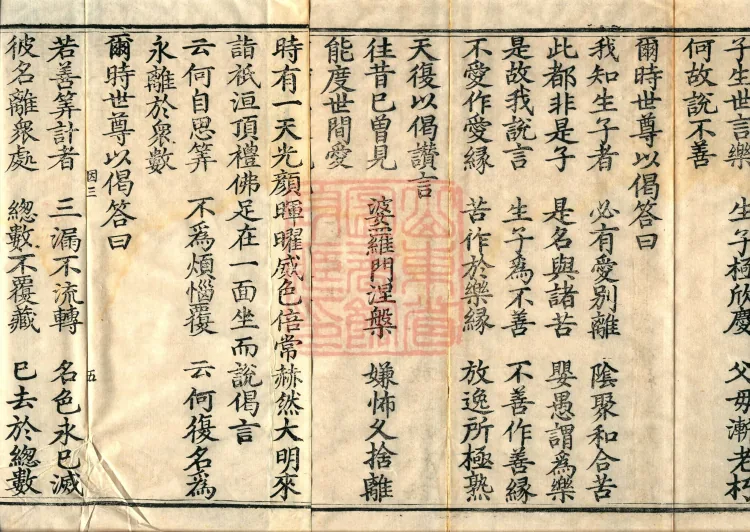 子生世言樂 生子極欣慶 父毋漸老朽
何故說不善
爾時世尊以偈荅曰
我知生子者 必有愛別離 陰聚和合苦
此都非是子 是名與諸苦 嬰愚謂爲樂
是故我說言 生子爲不善 不善作善緣
不愛作愛緣 苦作於樂緣 放逸所極熟
天復以偈讚言
往昔已曾見 婆羅門涅槃 嫌怖久捨離
能度世間愛
時有一天光顏暉曜威色倍常赫然大明來
詣祇洹頂禮佛足在一面坐而說偈言
云何自思筭 不爲煩惱覆 云何復名爲
永離於衆數
爾時世尊以偈答曰
若善筭計者 三漏不流轉 名色永已滅
因三 五
彼名離衆處 總數不覆藏 已去於總數